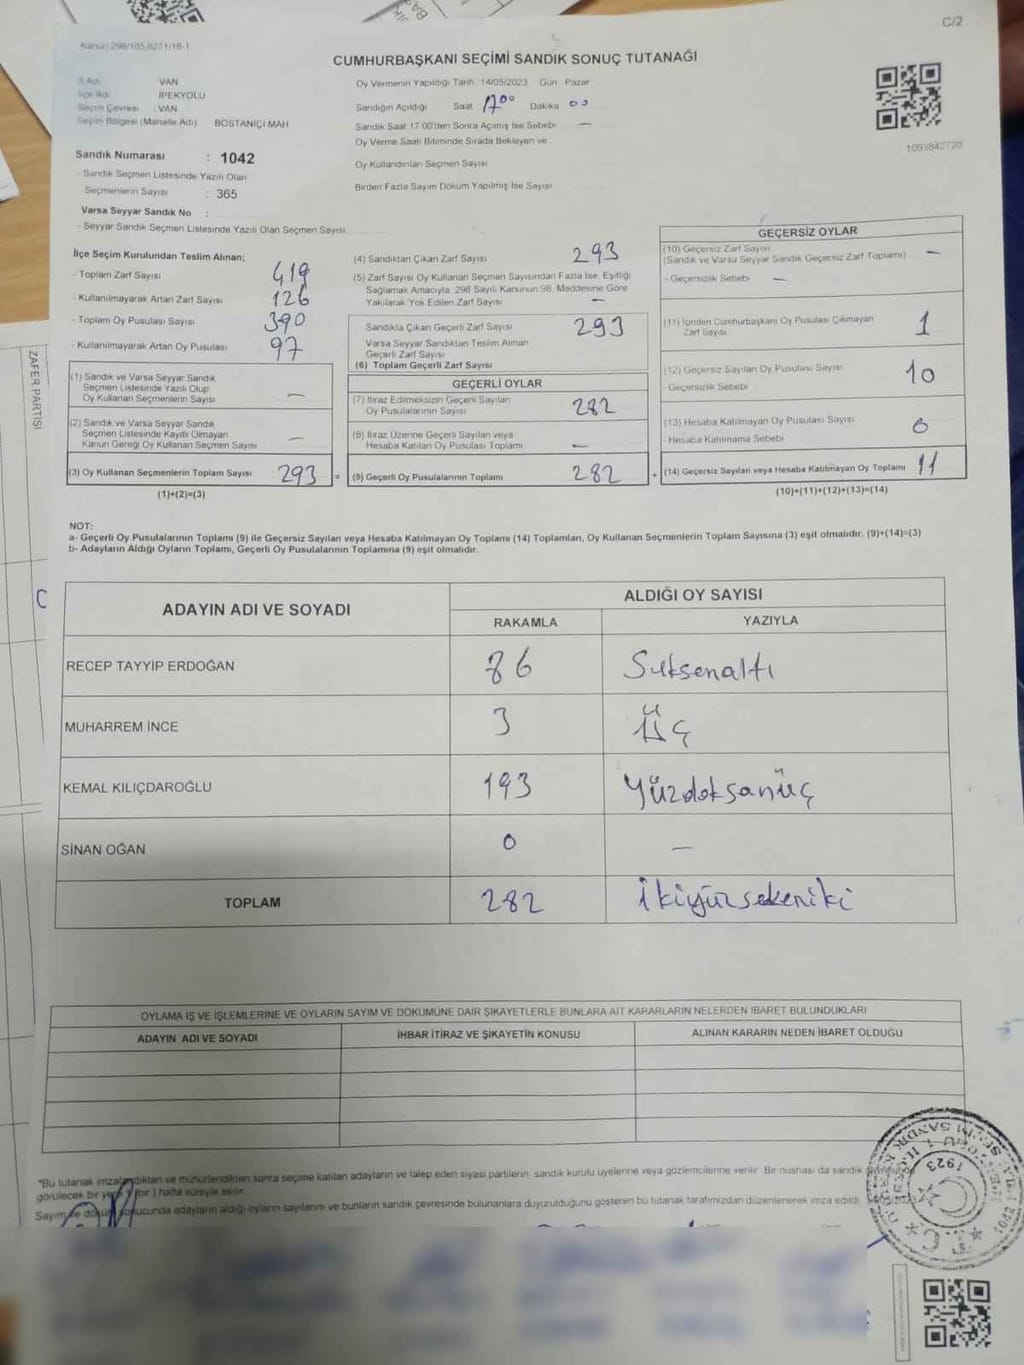 C/2
Kanun 298/105,6271/18-1
CUMHURBAŞKANI SEÇİMİ SANDIK SONUÇ TUTANAĞI
İl Adı VAN
İlçe Adı İPEKYOLU
Seçim Çevresi : VAN
Seçim Bölgesi (Mahalle Adı) BOSTANİÇİ MAH
Sandık Numarası : 1042
- Sandık Seçmen Listesinde Yazılı Olan
Seçmenlerin Sayısı : 365
Varsa Seyyar Sandık No :
- Seyyar Sandık Seçmen Listesinde Yazılı Olan Seçmen Sayısı
Oy Vermenin Yapıldığı Tarih : 14/05/2023 Gün : Pazar
Sandığın Açıldığı Saat 17 00 Dakika 03
Sandık Saat 17:00'den Sonra Açılmış İse Sebebi —
Oy Verme Saati Bitiminde Sırada Bekleyen ve
Oy Kullandırılan Seçmen Sayısı
Birden Fazla Sayım Döküm Yapılmış İse Sayısı
1093842720
İlçe Seçim Kurulundan Teslim Alınan;
- Toplam Zarf Sayısı 419
- Kullanılmayarak Artan Zarf Sayısı 126
- Toplam Oy Pusulası Sayısı 390
- Kullanılmayarak Artan Oy Pusulası 97
(1) Sandık ve Varsa Seyyar Sandık
Seçmen Listesinde Yazılı Olup
Oy Kullanan Seçmenlerin Sayısı —
(2) Sandık ve Varsa Seyyar Sandık
Seçmen Listesinde Kayıtlı Olmayan
Kanun Gereği Oy Kullanan Seçmen Sayısı —
(3) Oy Kullanan Seçmenlerin Toplam Sayısı 293 =
(1)+(2)=(3)
(4) Sandıktan Çıkan Zarf Sayısı 293
(5) Zarf Sayısı Oy Kullanan Seçmen Sayısından Fazla İse, Eşitliği
Sağlamak Amacıyla, 298 Sayılı Kanunun 98. Maddesine Göre
Yakılarak Yok Edilen Zarf Sayısı —
Sandıkta Çıkan Geçerli Zarf Sayısı 293
Varsa Seyyar Sandıktan Teslim Alınan
Geçerli Zarf Sayısı
(6) Toplam Geçerli Zarf Sayısı
GEÇERLİ OYLAR
(7) İtiraz Edilmeksizin Geçerli Sayılan
Oy Pusulalarının Sayısı 282
(8) İtiraz Üzerine Geçerli Sayılan veya
Hesaba Katılan Oy Pusulası Toplamı —
(9) Geçerli Oy Pusulalarının Toplamı 282 +
GEÇERSİZ OYLAR
(10) Geçersiz Zarf Sayısı
(Sandık ve Varsa Seyyar Sandık Geçersiz Zarf Toplamı) —
- Geçersizlik Sebebi —
(11) İçinden Cumhurbaşkanı Oy Pusulası Çıkmayan
Zarf Sayısı 1
(12) Geçersiz Sayılan Oy Pusulası Sayısı 10
- Geçersizlik Sebebi
(13) Hesaba Katılmayan Oy Pusulası Sayısı 0
- Hesaba Katılmama Sebebi
(14) Geçersiz Sayılan veya Hesaba Katılmayan Oy Toplamı 11
(10)+(11)+(12)+(13)=(14)
NOT:
a- Geçerli Oy Pusulalarının Toplamı (9) ile Geçersiz Sayılan veya Hesaba Katılmayan Oy Toplamı (14) Toplamları, Oy Kullanan Seçmenlerin Toplam Sayısına (3) eşit olmalıdır. (9)+(14)=(3)
b- Adayların Aldığı Oyların Toplamı, Geçerli Oy Pusulalarının Toplamına (9) eşit olmalıdır.
ADAYIN ADI VE SOYADI ALDIĞI OY SAYISI
RAKAMLA YAZIYLA
RECEP TAYYİP ERDOĞAN 86 Seksenaltı
MUHARREM İNCE 3 Üç
KEMAL KILIÇDAROĞLU 193 Yüzdoksanüç
SİNAN OĞAN 0 —
TOPLAM 282 İkiyüzsekeniki
OYLAMA İŞ VE İŞLEMLERİNE VE OYLARIN SAYIM VE DÖKÜMÜNE DAİR ŞİKAYETLERLE BUNLARA AİT KARARLARIN NELERDEN İBARET BULUNDUKLARI
ADAYIN ADI VE SOYADI İHBAR İTİRAZ VE ŞİKAYETİN KONUSU ALINAN KARARIN NEDEN İBARET OLDUĞU
*Bu tutanak imzalandıktan ve mühürlendikten sonra seçime katılan adayların ve talep eden siyasi partilerin sandık kurulu üyelerine veya gözlemcilerine verilir. Bir nushası da sandık çevresinde
görülecek bir yere 1 (bir ) hafta süreyle asılır.
Sayım ve döküm sonucunda adayların aldığı oyların sayılarını ve bunların sandık çevresinde bulunanlara duyurulduğunu gösteren bu tutanak tarafımızdan düzenlenerek imza edildi.
1923
T.C.
ZAFER PARTİSİ